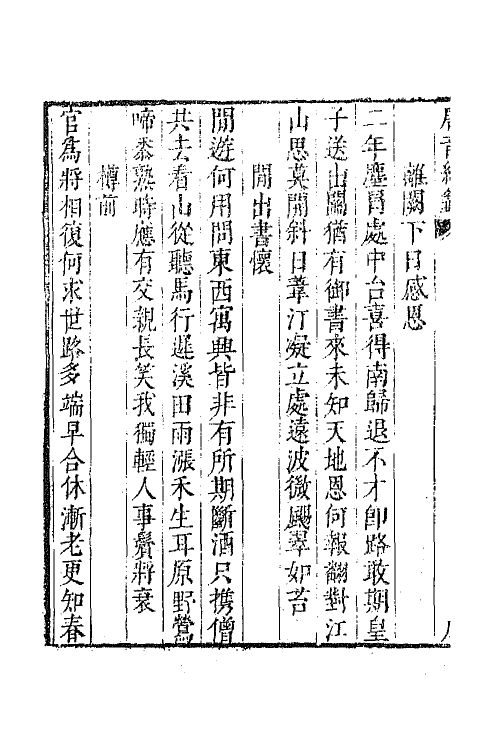 離闕下日感恩
二年塵冒處中台喜得南歸退不才卽路敢期皇
子送出關猶有御書來未知天地恩何報翻對江
山思莫開斜日葦汀凝立處遠波微颺翠如苔
閒出書懷
閒遊何用問東西寓興皆非有所期斷酒只携僧
共去看山從聽馬行遲溪田雨漲禾生耳原野鶯
啼黍熟時應有交親長笑我獨輕人事鬢將衰
樽前
官爲將相復何求世路多端早合休漸老更知春